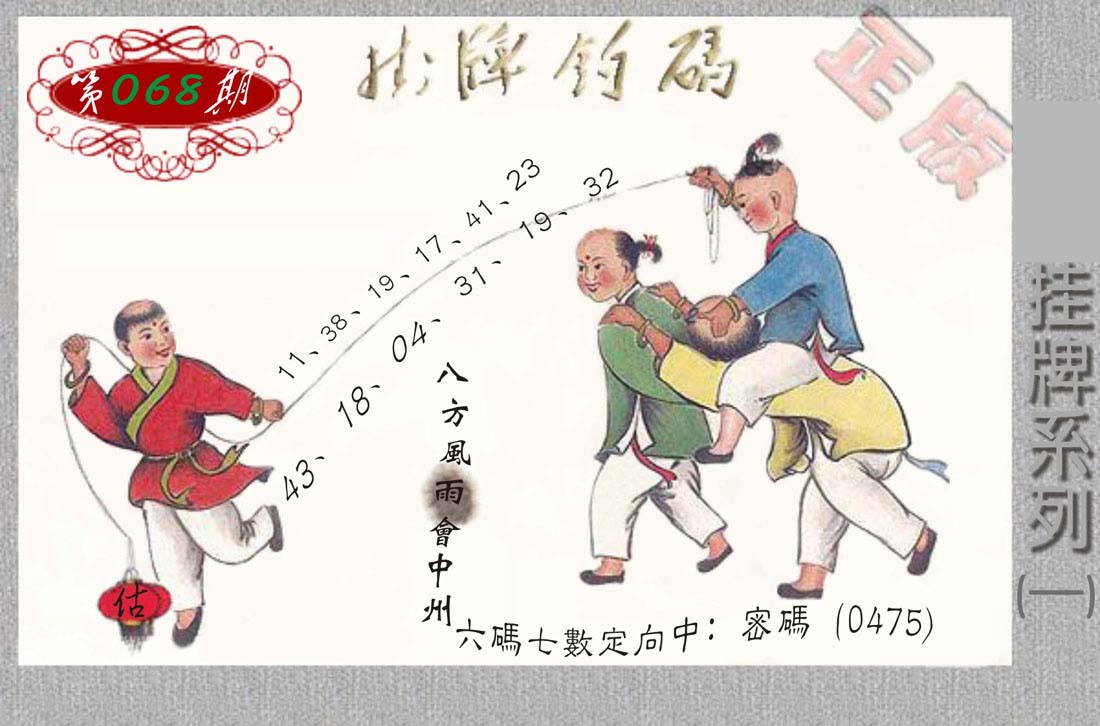 第068期
掛牌釣碼
正版
11、38、19、17、41、23
43、18、04、31、19、32
八方風雨會中州
估
六碼七數定向中：密碼（0475）
挂牌系列(一)